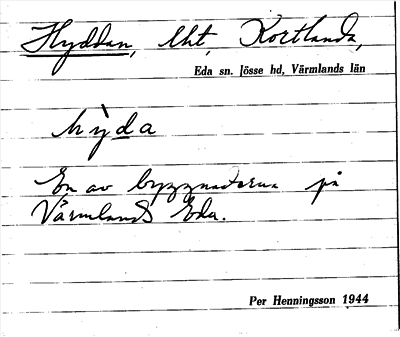 Hyddan, lht, Kortlanda,
Eda sn. Jösse hd, Värmlands län
hỳda
En av byggnaderna på
Värmlands Eda.
Per Henningsson 1944